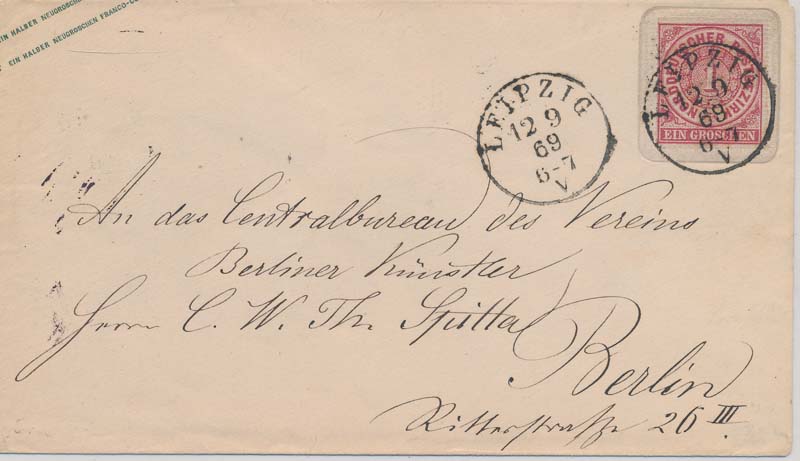 EIN HALBER NEUGROSCHEN
EIN HALBER NEUGROSCHEN FRANCO-CO
LEIPZIG
12 9
69
6-7
V
NORDDEUTSCHER POSTBEZIRK
1
EIN GROSCHEN
LEIPZIG
12 9
69
6-7
V
An das Centralbureau des Vereins
Berliner Künstler
Herrn C. W. Th. Spitta
Berlin
Ritterstraße 26 III.